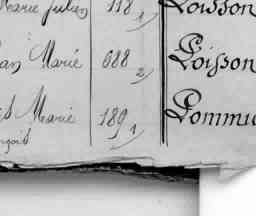 Marie Julien 118 1) Loisson
an Marié 688 2) Poisson
Marié 189 1) Pommi
nçois